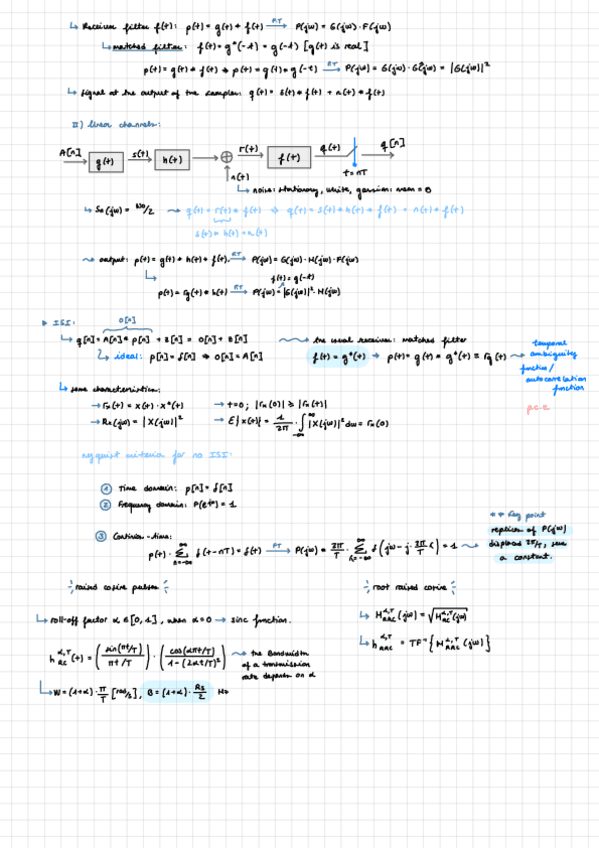 ↳ Receiver filter f(t): p(t) = g(t) * f(t) —FT→ P(jω) = G(jω)·F(jω)
↳ matched filter: f(t) = g*(-t) = g(-t) [g(t) is real]
p(t) = g(t) * f(t) → p(t) = g(t) * g(-t) —FT→ P(jω) = G(jω)·G*(jω) = |G(jω)|²
↳ Signal at the output of the sampler: q(t) = s(t) * f(t) + n(t) * f(t)
II) linear channels:
A[n] → g(t) → s(t) → h(t) → ⊕ → r(t) → f(t) → q(t) → q[n]
n(t) t = nT
↳ noise: stationary, white, gaussian: mean = 0
↳ Sn(jω) = N0/2 ~> q(t) = r(t) * f(t) ⇒ q(t) = s(t) * h(t) * f(t) + n(t) * f(t)
s(t) * h(t) + n(t)
~> output: p(t) = g(t) * h(t) * f(t) —FT→ P(jω) = G(jω)·H(jω)·F(jω)
↳ f(t) = g(-t)
p(t) = rg(t) * h(t) —FT→ P(jω) = |G(jω)|²·H(jω)
▸ ISI: O[n]
↳ q[n] = A[n] * p[n] + B[n] = O[n] + B[n] ~> the usual receiver: matched filter
↳ ideal: p[n] = δ[n] → O[n] = A[n] f(t) = g*(-t) → p(t) = g(t) * g*(-t) = rg(t) ~> temporal ambiguity function / autocorrelation function
↳ some characteristics:
→ rx(t) = x(t) · x*(t) → t=0; |rx(0)| ≥ |rx(t)|
→ Rx(jω) = |X(jω)|² → E{x(t)} = 1/2π · ∫_{-∞}^{∞} |X(jω)|² dω = rx(0)
nyquist criteria for no ISI:
① Time domain: p[n] = δ[n]
② Frequency domain: P(e^jω) = 1
③ Continuous-time:
p(t) · Σ_{n=-∞}^{∞} δ(t-nT) = δ(t) —FT→ P(jω) * 2π/T · Σ_{k=-∞}^{∞} δ(jω - j·2π/T k) = 1 ~>
** key point
replicas of P(jω)
displaced 2π/T, sum
a constant.
raised cosine pulses
root raised cosine
↳ roll-off factor α ∈ [0, 1], when α=0 → sinc function.
↳ H_RRC^{α,T}(jω) = √H_RC^{α,T}(jω)
h_RC^{α,T}(t) = (sin(πt/T) / πt/T) · (cos(απt/T) / 1-(2αt/T)²) ~> the bandwidth
of a transmission
rate depends on α
↳ h_RRC^{α,T} = TF⁻¹{H_RRC^{α,T}(jω)}
↳ W = (1+α) · π/T [rad/s], B = (1+α) · Rs/2 Hz